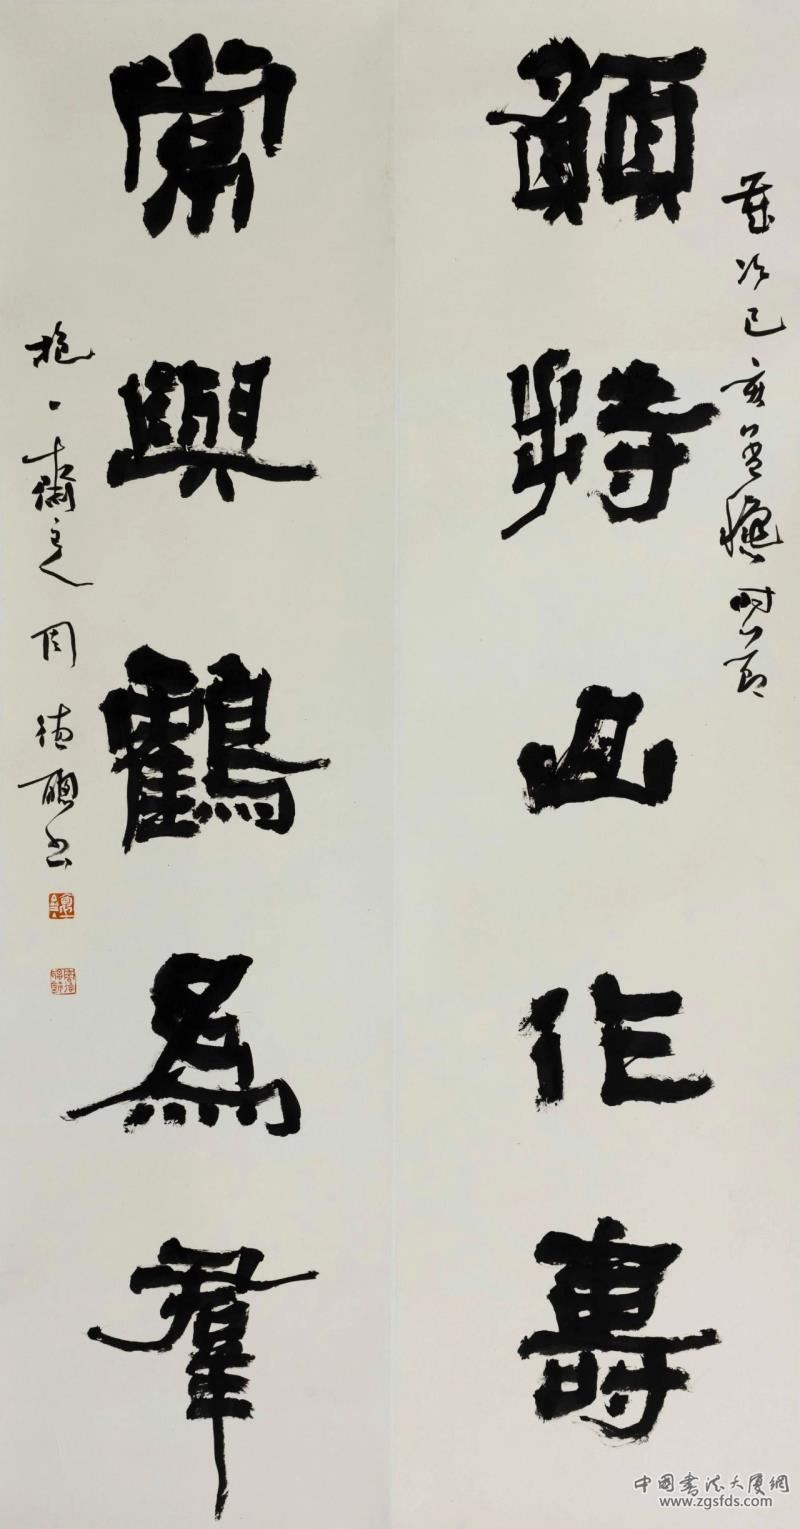 歲次己亥孟穐時節
願持山作壽
常與鶴為羣
抱一齋主人周德聰書
中國書法大廈網
www.zgsfds.com